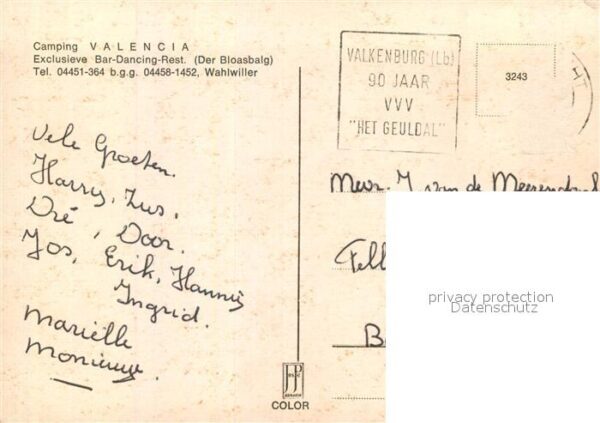 Camping VALENCIA
Exclusieve Bar-Dancing-Rest. (Der Bloasbalg)
Tel. 04451-364 b.g.g. 04458-1452, Wahlwiller
VALKENBURG (Lb)
90 JAAR
VVV
"HET GEULDAL"
3243
Vele Groeten.
Harry, Zus,
Dré, Door.
Jos, Erik, Hannie
Ingrid.
Mariëlle
Monique.
Mevr. J. van de
Fell
privacy protection
Datenschutz
JosPé
COLOR